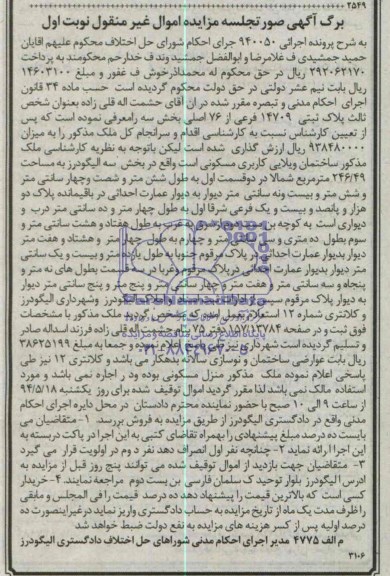 ۲۵۴۹
برگ آگهی صورتجلسه مزایده اموال غیر منقول نوبت اول
به شرح پرونده اجرائی ۹۴۰۰۵۰ جرای احکام شورای حل اختلاف محکوم علیهم آقایان
حمید جمشیدی ف غلامرضا و ابوالفضل جمشید وند ف خدارحم محکومند به پرداخت
۲۹۲۰۶۲۱۷۰ ریال در حق محکوم له محمدآذرخوش ف غفور و مبلغ ۱۴۶۰۳۱۰۰
ریال بابت نیم عشر دولتی در حق دولت محکوم گردیده است حسب ماده ۳۴ قانون
اجرای احکام مدنی و تبصره مقرر شده در آن آقای حشمت اله قلی زاده بعنوان شخص
ثالث پلاک ثبتی ۱۴۷۰۹ فرعی از ۷۶ اصلی بخش سه رامعرفی نموده است که پس
از تعیین کارشناس نسبت به کارشناسی اقدام و سرانجام کل ملک مذکور را به میزان
۹۳۸۴۸۰۰۰۰ ریال ارزش گذاری شده است لیکن باتوجه به نظریه کارشناسی ملک
مذکور ساختمان ویلایی کاربری مسکونی است واقع در بخش سه الیگودرز به مساحت
۲۴۶/۴۹ مترمربع شمالا در دوقسمت اول به طول شش متر و شصت وچهار سانتی متر
و شش متر و بیست ونه سانتی متر دیوار به دیوار عمارت احداثی در باقیمانده پلاک دو
هزار و پانصد و بیست و یک فرعی شرقا اول به طول چهار متر و ده سانتی متر درب و
دیواری است به کوچه بن بست دوم به غرب به طول هفتاد و هشت سانتی متر و
سوم بطول ده متری و متر و چهارم به طول چهار متر و هشتاد و هفت متر
دیوار بدیوار عمارت احداثی در پلاک مرقوم جنوبا به طول یازده متر و بیست و یک سانتی
متر دیوار بدیوار عمارت احداثی درپلاک مرقوم غربا در قسمت بطول های نه متر و
پنجاه و سه سانتی متر و هفت متر و چهل سانتی متر و پنج متر و پنج سانتی متر دیوار
به دیوار پلاک مرقوم الیگودرز وشهرداری الیگودرز
و کلانتری شماره ۱۲ استعلام بعمل آمده که مشخص گردید ملک مذکور با مشخصات
فوق ثبت و در صفحه ۱۵۷/۱۳۷۸۴ دفتر ۷۵ بنام حشمت اله قلی زاده فرزند اسداله صادر
و تسلیم گردیده است شهرداری نیز طی پاسخ اعلام نموده و جمعا به مبلغ ۳۸۶۲۵۱۹۹
ریال بابت عوارضی ساختمان و نوسازی سالانه بدهکار می باشد و کلانتری ۱۲ نیز طی
پاسخی اعلام نموده ملک مذکور منزل مسکونی بوده و در اجاره نمی باشد و مورد
استفاده مالک نمی باشد لذا مقرر گردید اموال توقیف شده برای روز یکشنبه ۹۴/۵/۱۸
از ساعت ۹ الی ۱۰ صبح با حضور نماینده محترم دادستان در محل دایره اجرای احکام
مدنی واقع در دادگستری الیگودرز از طریق مزایده به فروش برسد. ۱- متقاضیان می
بایست ده درصد مبلغ پیشنهادی را بهمراه تقاضای کتبی به این اجرا در پاکت دربسته به
این اجرا ارائه نماید ۲- چنانچه نفر اول انصراف دهد نفر دوم در اولویت قرار می گیرد
۳- متقاضیان جهت بازدید از اموال توقیف شده می توانند پنج روز قبل از مزایده به
آدرس الیگودرز بلوار توحید ک سلمان فارسی بن بست دوم مراجعه نمایند. ۴- خریدار
کسی است که بالاترین قیمت را پیشنهاد دهد ده درصد قیمت را فی المجلس و مابقی
را ظرف مدت یک ماه از تاریخ مزایده به حساب دادگستری واریز نماید درغیراینصورت ده
درصد اولیه پس از کسر هزینه های مزایده به نفع دولت ضبط خواهد شد
م الف ۴۷۷۵ مدیر اجرای احکام مدنی شوراهای حل اختلاف دادگستری الیگودرز
۳۱۰۶
پایگاه اطلاع رسانی مناقصه و مزایده
۰۲۱-۸۸۳۴۹۶۷۰-۵